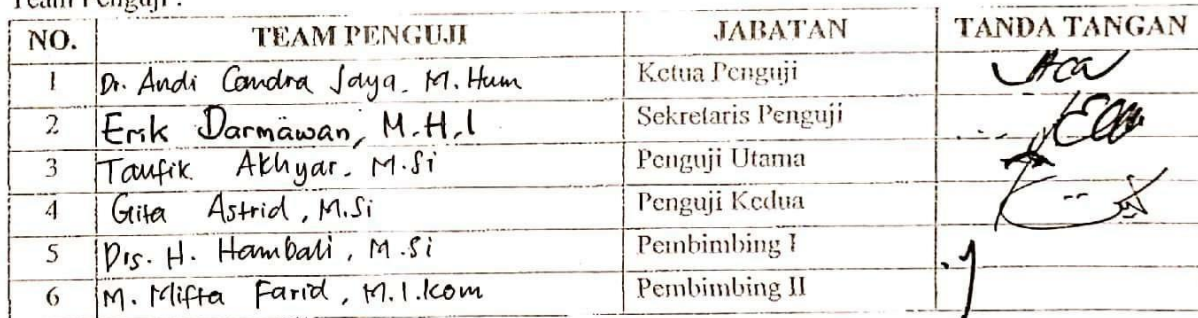 Team Penguji :
NO. TEAM PENGUJI JABATAN TANDA TANGAN
1 Dr. Andi Candra Jaya. M. Hum Ketua Penguji
2 Erik Darmawan, M.H.I Sekretaris Penguji
3 Taufik Akhyar. M.Si Penguji Utama
4 Gita Astrid, M.Si Penguji Kedua
5 Drs. H. Hambali, M.Si Pembimbing I
6 M. Mifta Farid, M.I.kom Pembimbing II